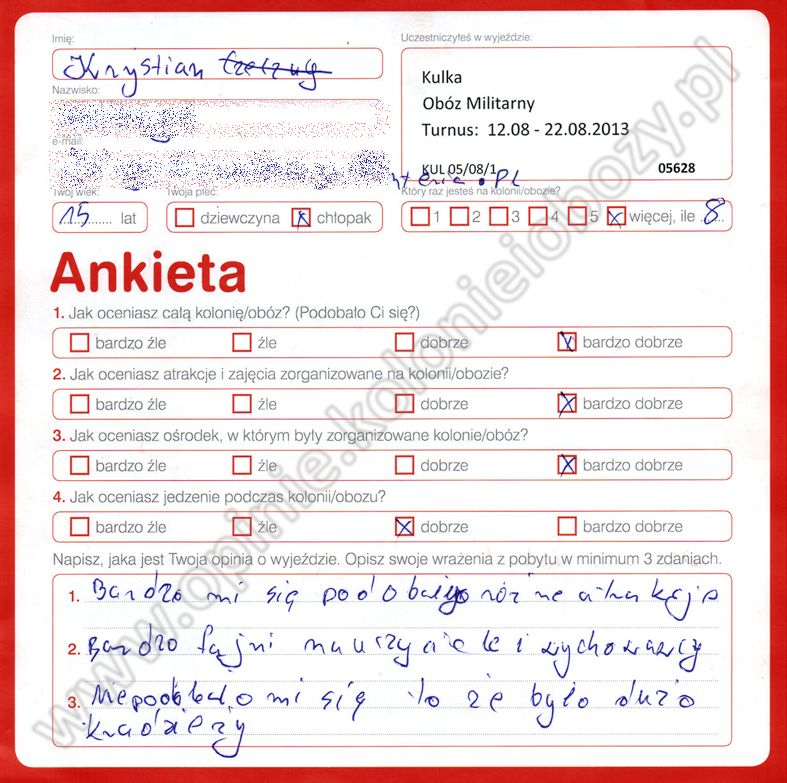 Imię:
Krystian
Nazwisko:
e-mail:
Twój wiek:
15 lat
Twoja płeć:
dziewczyna chłopak
Uczestniczyłeś w wyjeździe:
Kulka
Obóz Militarny
Turnus: 12.08 - 22.08.2013
KUL 05/08/1 05628
Który raz jesteś na kolonii/obozie?
1 2 3 4 5 więcej, ile 8
Ankieta
1. Jak oceniasz całą kolonię/obóz? (Podobało Ci się?)
bardzo źle źle dobrze bardzo dobrze
2. Jak oceniasz atrakcje i zajęcia zorganizowane na kolonii/obozie?
bardzo źle źle dobrze bardzo dobrze
3. Jak oceniasz ośrodek, w którym były zorganizowane kolonie/obóz?
bardzo źle źle dobrze bardzo dobrze
4. Jak oceniasz jedzenie podczas kolonii/obozu?
bardzo źle źle dobrze bardzo dobrze
Napisz, jaka jest Twoja opinia o wyjeździe. Opisz swoje wrażenia z pobytu w minimum 3 zdaniach.
1. Bardzo mi się podobały różne atrakcje
2. Bardzo fajni nauczyciele i wychowawcy
3. Niepodobało mi się to że było dużo
kradzieży
www.opinie.kolonieiobozy.pl